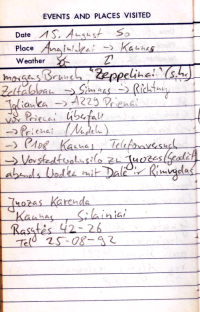 EVENTS AND PLACES VISITED
Date 15. August So
Place → Kaunas
Weather
morgens Brunch "Zeppelinai" (s.h.)
Zeltabbau → Simnas → Richtung
→ A229 Prienai
vor Prienai Überfall
→ Prienai (Nadeln)
→ P108 Kaunas, Telefonversuch
→ zu Juozas
abends Wodka mit Dale ir Rimvydas
Juozas Karenda
Kaunas, Silainiai
Rasytės 42-26
Tel 25-08-92